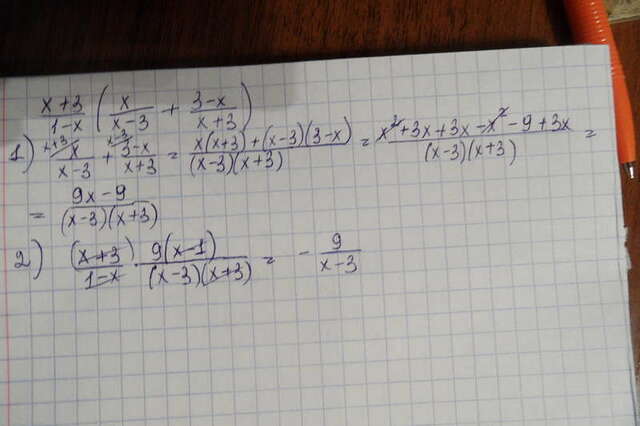 x+3/1-x (x/x-3 + 3-x/x+3)
1) x+3/ x/x-3 + x-3/ 3-x/x+3 = x(x+3)+(x-3)(3-x)/(x-3)(x+3) = x²+3x+3x-x²-9+3x/(x-3)(x+3) =
= 9x-9/(x-3)(x+3)
2) (x+3)/1-x · 9(x-1)/(x-3)(x+3) = - 9/x-3